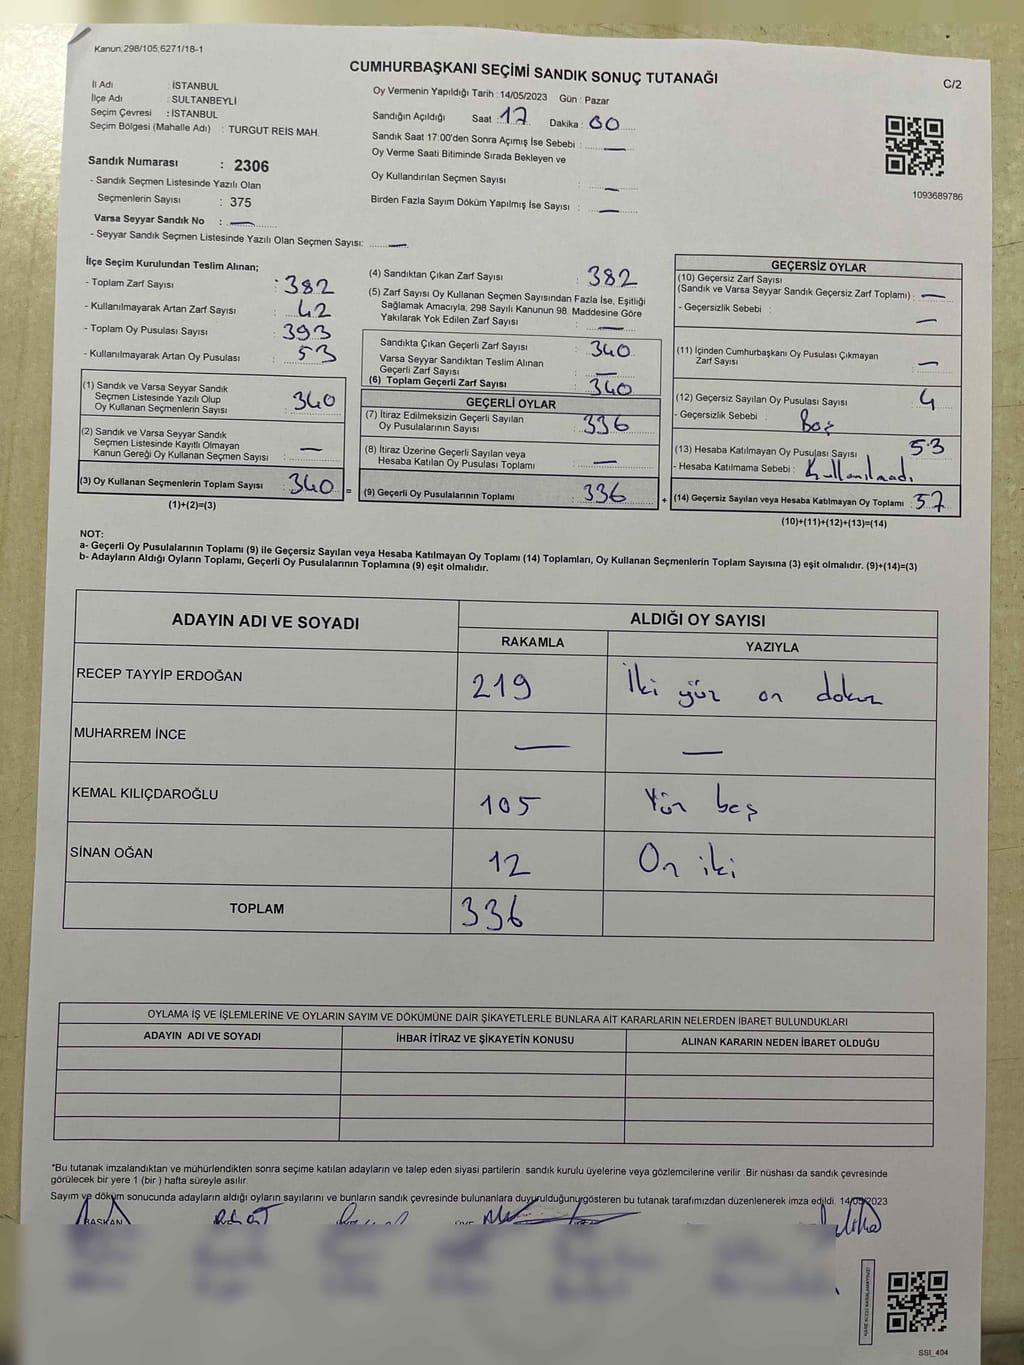 Kanun,298/105,6271/18-1
CUMHURBAŞKANI SEÇİMİ SANDIK SONUÇ TUTANAĞI
C/2
İl Adı : İSTANBUL
İlçe Adı : SULTANBEYLİ
Seçim Çevresi : İSTANBUL
Seçim Bölgesi (Mahalle Adı) : TURGUT REİS MAH.
Sandık Numarası : 2306
- Sandık Seçmen Listesinde Yazılı Olan
Seçmenlerin Sayısı : 375
Varsa Seyyar Sandık No : —
- Seyyar Sandık Seçmen Listesinde Yazılı Olan Seçmen Sayısı: —
Oy Vermenin Yapıldığı Tarih : 14/05/2023 Gün : Pazar
Sandığın Açıldığı Saat 17 Dakika : 00
Sandık Saat 17:00'den Sonra Açımış İse Sebebi : —
Oy Verme Saati Bitiminde Sırada Bekleyen ve
Oy Kullandırılan Seçmen Sayısı : —
Birden Fazla Sayım Döküm Yapılmış İse Sayısı : —
1093689786
İlçe Seçim Kurulundan Teslim Alınan;
- Toplam Zarf Sayısı : 382
- Kullanılmayarak Artan Zarf Sayısı : 42
- Toplam Oy Pusulası Sayısı : 393
- Kullanılmayarak Artan Oy Pusulası : 53
(1) Sandık ve Varsa Seyyar Sandık
Seçmen Listesinde Yazılı Olup
Oy Kullanan Seçmenlerin Sayısı : 340
(2) Sandık ve Varsa Seyyar Sandık
Seçmen Listesinde Kayıtlı Olmayan
Kanun Gereği Oy Kullanan Seçmen Sayısı : —
(3) Oy Kullanan Seçmenlerin Toplam Sayısı : 340 =
(1)+(2)=(3)
(4) Sandıktan Çıkan Zarf Sayısı : 382
(5) Zarf Sayısı Oy Kullanan Seçmen Sayısından Fazla İse, Eşitliği
Sağlamak Amacıyla, 298 Sayılı Kanunun 98. Maddesine Göre
Yakılarak Yok Edilen Zarf Sayısı : —
Sandıkta Çıkan Geçerli Zarf Sayısı : 340
Varsa Seyyar Sandıktan Teslim Alınan
Geçerli Zarf Sayısı : —
(6) Toplam Geçerli Zarf Sayısı : 340
GEÇERLİ OYLAR
(7) İtiraz Edilmeksizin Geçerli Sayılan
Oy Pusulalarının Sayısı : 336
(8) İtiraz Üzerine Geçerli Sayılan veya
Hesaba Katılan Oy Pusulası Toplamı : —
(9) Geçerli Oy Pusulalarının Toplamı : 336 +
GEÇERSİZ OYLAR
(10) Geçersiz Zarf Sayısı
(Sandık ve Varsa Seyyar Sandık Geçersiz Zarf Toplamı) : —
- Geçersizlik Sebebi : —
(11) İçinden Cumhurbaşkanı Oy Pusulası Çıkmayan
Zarf Sayısı : —
(12) Geçersiz Sayılan Oy Pusulası Sayısı : 4
- Geçersizlik Sebebi : Boş
(13) Hesaba Katılmayan Oy Pusulası Sayısı : 53
- Hesaba Katılmama Sebebi : Kullanılmadı
(14) Geçersiz Sayılan veya Hesaba Katılmayan Oy Toplamı : 57
(10)+(11)+(12)+(13)=(14)
NOT:
a- Geçerli Oy Pusulalarının Toplamı (9) ile Geçersiz Sayılan veya Hesaba Katılmayan Oy Toplamı (14) Toplamları, Oy Kullanan Seçmenlerin Toplam Sayısına (3) eşit olmalıdır. (9)+(14)=(3)
b- Adayların Aldığı Oyların Toplamı, Geçerli Oy Pusulalarının Toplamına (9) eşit olmalıdır.
ADAYIN ADI VE SOYADI ALDIĞI OY SAYISI
RAKAMLA YAZIYLA
RECEP TAYYİP ERDOĞAN 219 İki yüz on dokuz
MUHARREM İNCE — —
KEMAL KILIÇDAROĞLU 105 Yüz beş
SİNAN OĞAN 12 On iki
TOPLAM 336
OYLAMA İŞ VE İŞLEMLERİNE VE OYLARIN SAYIM VE DÖKÜMÜNE DAİR ŞİKAYETLERLE BUNLARA AİT KARARLARIN NELERDEN İBARET BULUNDUKLARI
ADAYIN ADI VE SOYADI İHBAR İTİRAZ VE ŞİKAYETİN KONUSU ALINAN KARARIN NEDEN İBARET OLDUĞU
*Bu tutanak imzalandıktan ve mühürlendikten sonra seçime katılan adayların ve talep eden siyasi partilerin sandık kurulu üyelerine veya gözlemcilerine verilir .Bir nüshası da sandık çevresinde
görülecek bir yere 1 (bir ) hafta süreyle asılır.
Sayım ve döküm sonucunda adayların aldığı oyların sayılarını ve bunların sandık çevresinde bulunanlara duyurulduğunu gösteren bu tutanak tarafımızdan düzenlenerek imza edildi. 14/05/2023
BAŞKAN
SSI_404